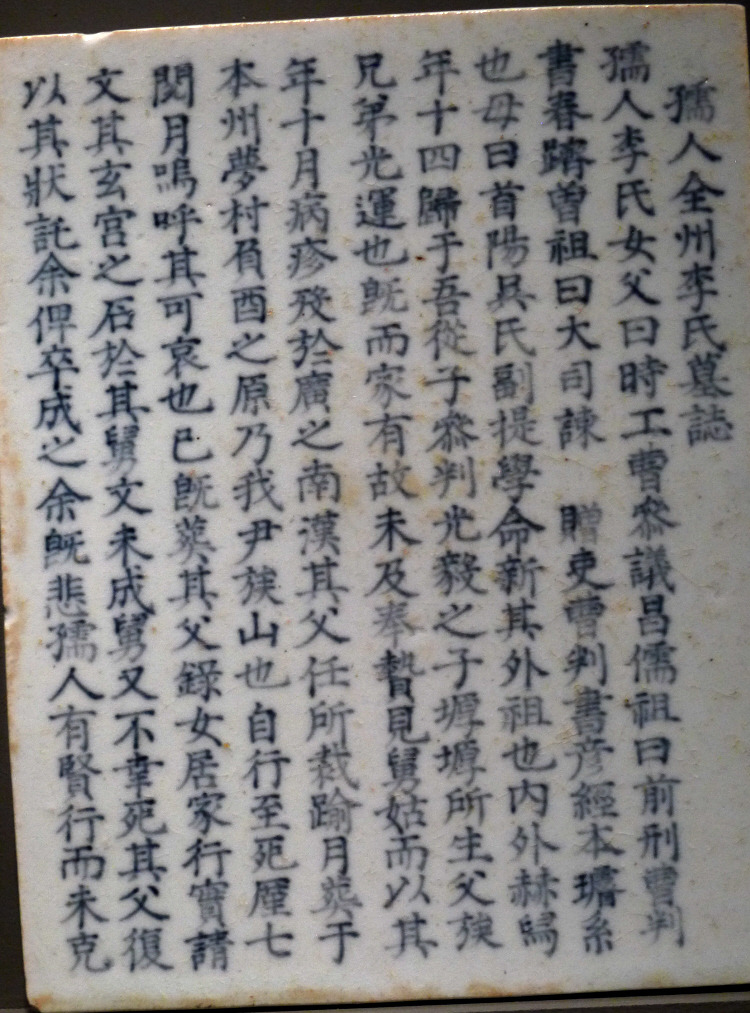 孺人全州李氏墓誌
孺人李氏女父曰時工曹叅議昌儒祖曰前刑曹判
書春躋曾祖曰大司諫 贈吏曹判書彦經本璿系
也母曰首陽吳氏副提學命新其外祖也內外赫舄
年十四歸于吾從子叅判光毅之子墀墀所生父族
兄弟光運也旣而家有故未及奉贄見舅姑而以其
年十月病疹歿於廣之南漢其父任所裁踰月葬于
本州夢村負酉之原乃我尹族山也自行至死厪七
閱月嗚呼其可哀也已旣葬其父錄女居家行實請
文其玄宮之石於其舅文未成舅又不幸死其父復
以其狀託余俾卒成之余旣悲孺人有賢行而未克